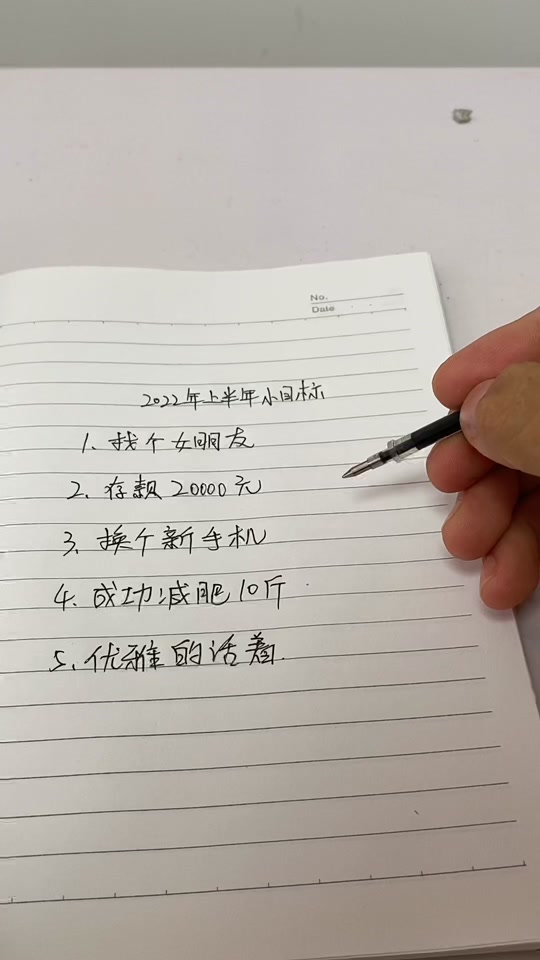 No.
Date
2022年上半年小目标
1、找个女朋友
2、存款20000元
3、换个新手机
4、成功减肥10斤
5、优雅的活着.